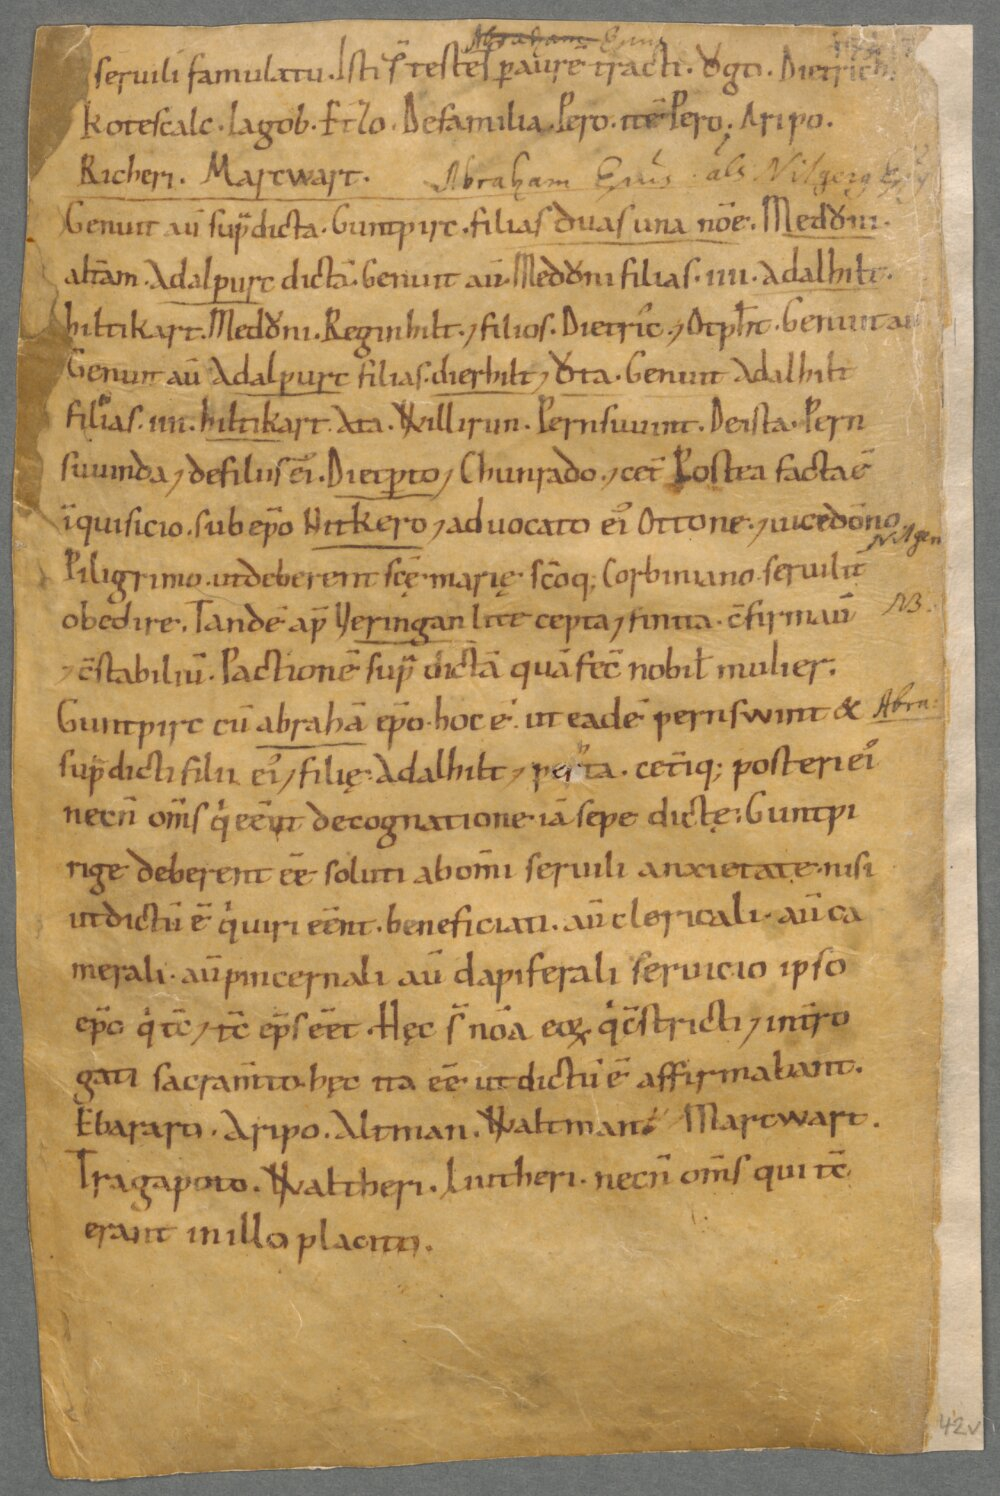 Abraham Epus
seruili famulatu. Isti s̄ testes p aurē tracti. Ogo. Dietrich.
Kotescalc. Iagob. Ezlo. De familia. Pero. itē Pero. Aripo.
Richeri. Marcwart. Abraham Epūs. als Nilgerg
Genuit aū sup̄dicta. Guntpirc. filias duas una nōe. Medoni.
alt̄am. Adalpurc dictā. Genuit aū. Medoni filias. iiii. Adalhilt.
hiltikart. Medoni. Reginhilt. ⁊ filios. Dietrīc. ⁊ Otpħt. Genuit au
Genuit aū Adalpurc filias. dierhilt ⁊ Ota. Genuit Adalhilt
filias. iiii. hiltikart. Ata. Willirun. Pernsuuint. De ista. Pern
suuinda ⁊ de filiis ei. Dietpto ⁊ Chunrado. ⁊ cet̄ Postea facta ē
īquisicio. sub ep̄o Nitkero ⁊ aduocato ei Ottone. ⁊ uicedōno
Nitgerı
Piligrimo. ut deberent scę marię sc̄oq; Corbiniano seruilit̄
obedire. Tandē ap̄ Yeringan lite cepta ⁊ finita. c̄firmaū
NB.
⁊ c̄stabiliū. Pactionē sup̄ dictā quā fec̄ nobił mulier.
Guntpirc cū abrahā ep̄o. hoc ē. ut eadē pernswint &
Abra:
sup̄dicti filii ei ⁊ filię. Adalhilt ⁊ perhta. cet̄iq; posteri ei
necn̄ om̄s q̇ eēnt de cognatione iā sepe dictę. Guntpi
rige deberent eē soluti ab om̄i seruili anxietate. nisi
ut dictū ē q̇ uiri eēnt. beneficiati. aū clericali. aū ca
merali. aū pincernali aū dapiferali seruicio ipso
ep̄o q̇ tc̄ ⁊ tc̄ ep̄s eēt. Hęc s̄ nōa eoꝝ q̇ c̄stricti ⁊ int̄ro
gati sacram̄to. hęc ita eē ut dictū ē affirmabant.
Ebarart. Aripo. Altman. Waltman. Marcwart.
Tragapoto. Waltheri. Liutheri. necn̄ om̄s qui tc̄
erant in illo placito.
42v